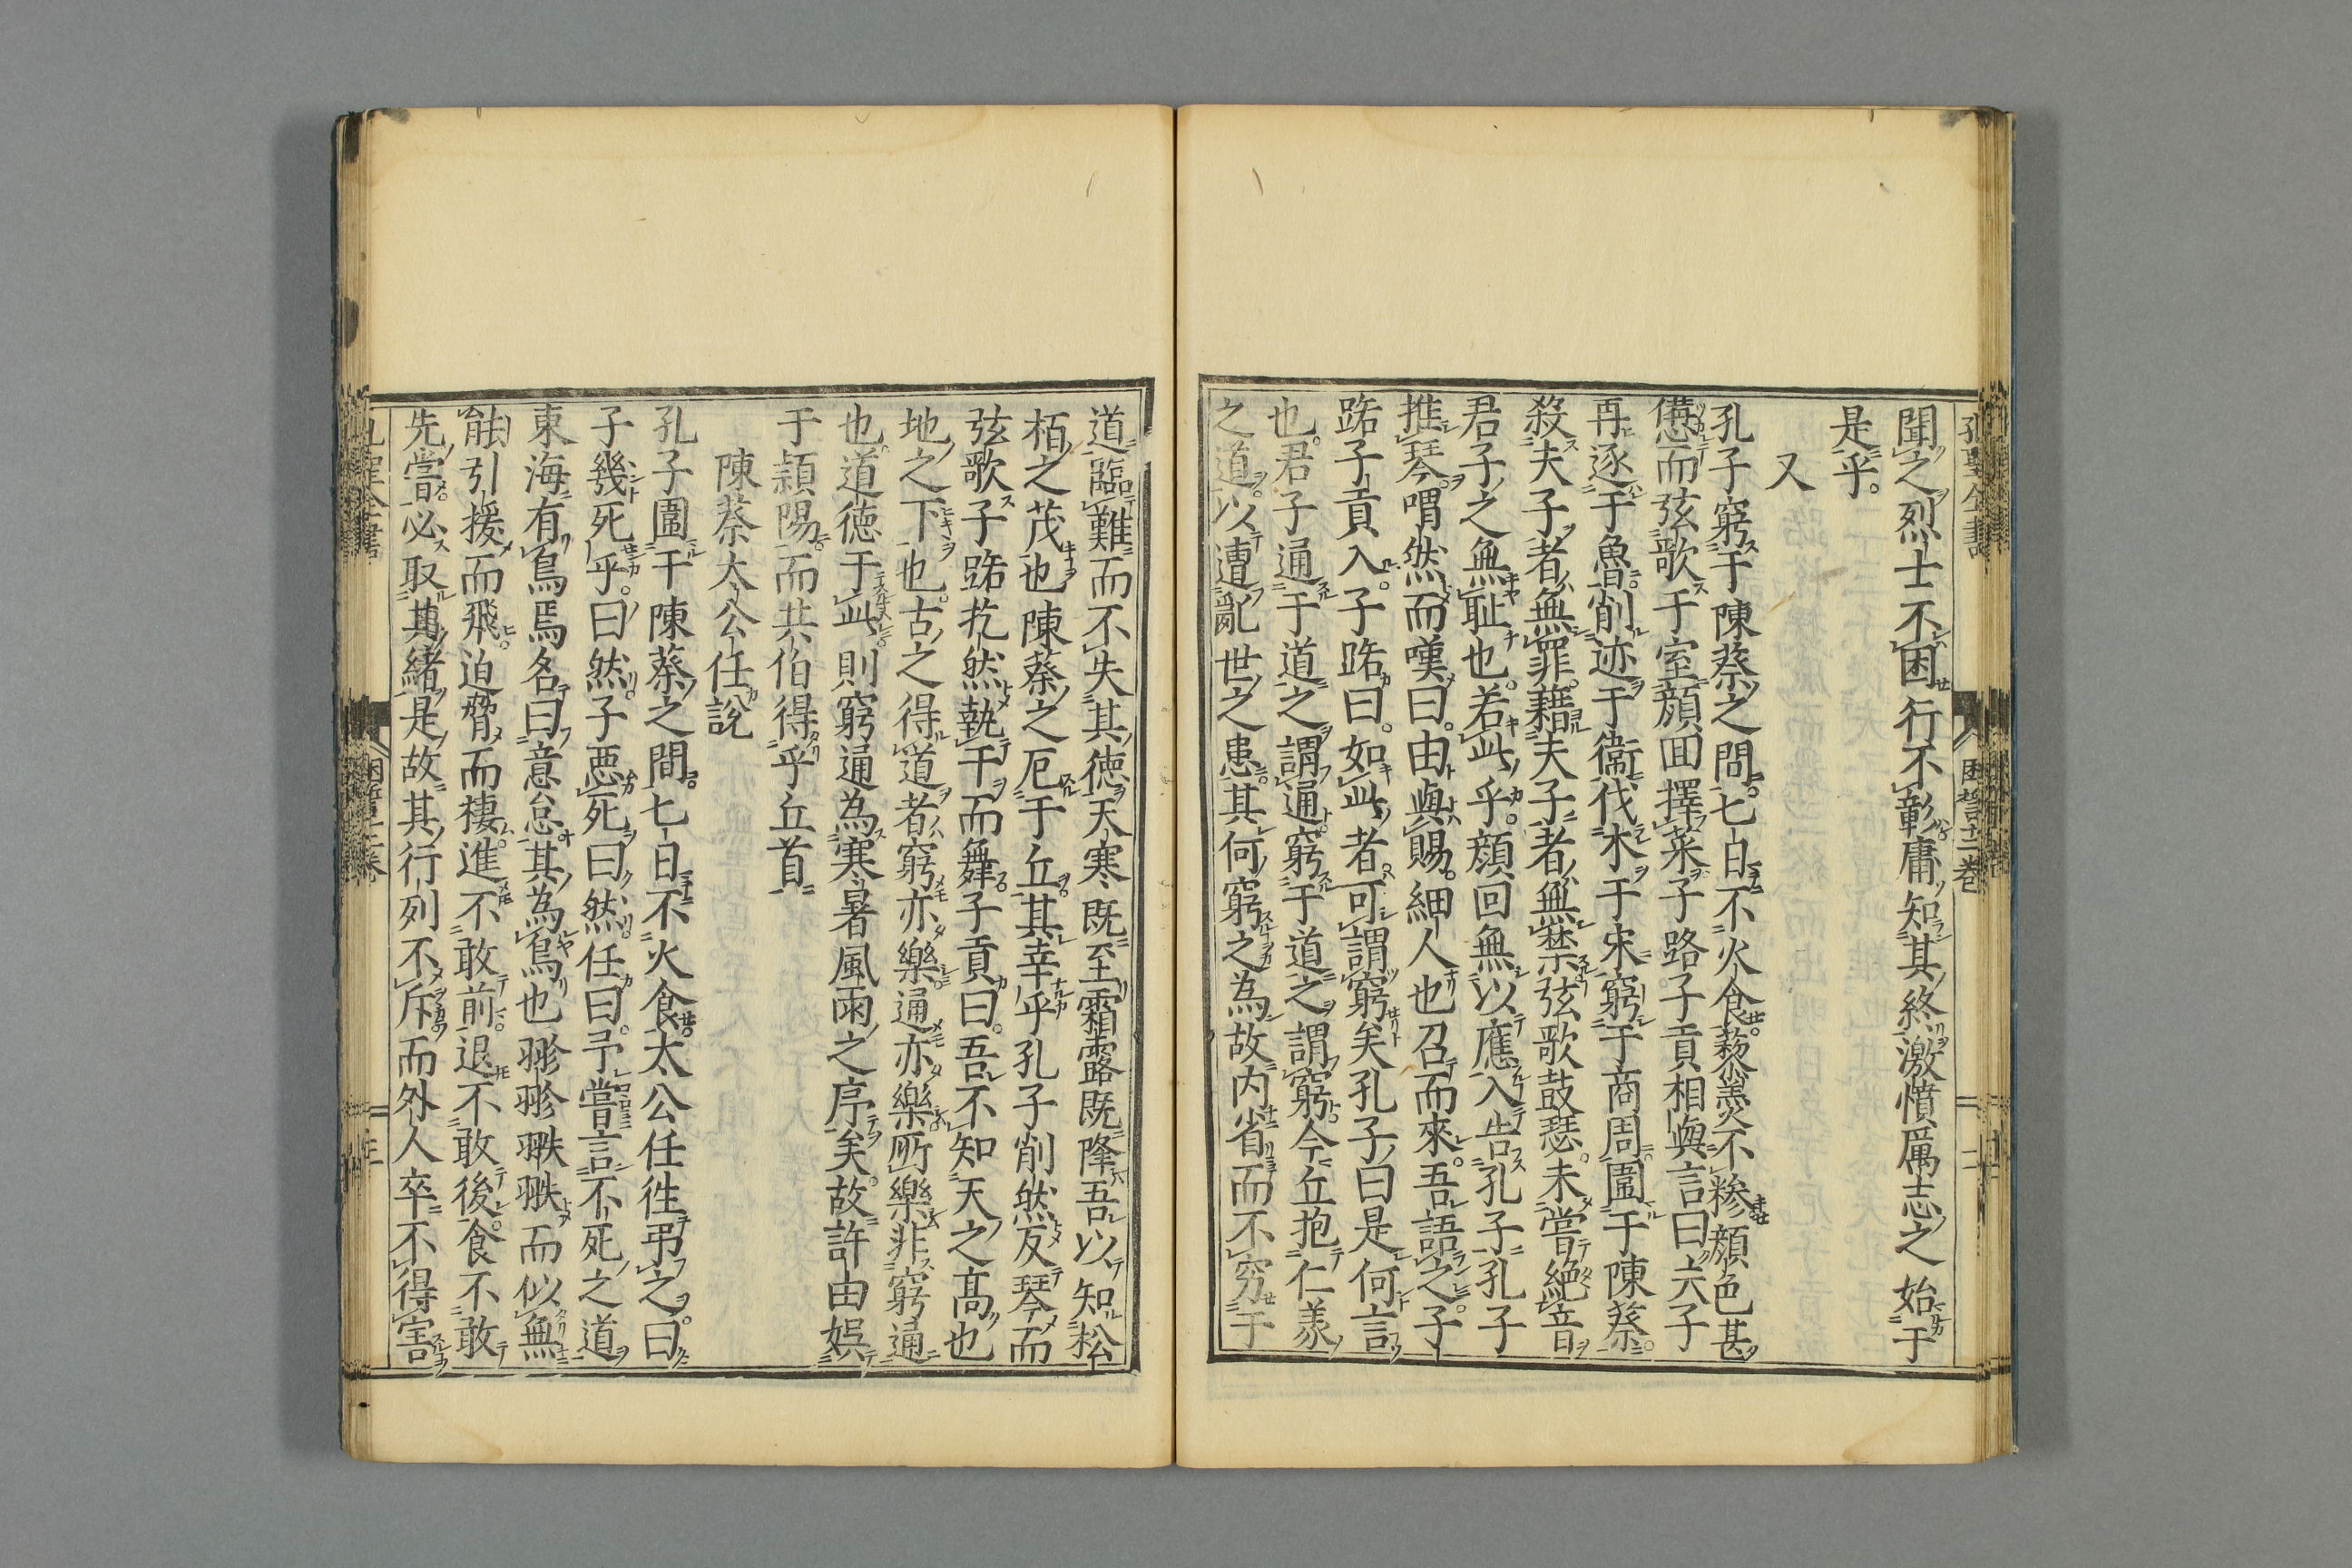 孔聖全書
困誓十二巻
聞之烈士不困行不彰庸知其終激憤厲志之始于
是乎
又
孔子窮于陳蔡之間七日不火食藜羹不糝顔色甚
憊而弦歌于室顔囬擇菜子路子貢相與言曰夫子
再逐于魯削迹于衞伐木于宋窮于商周圍于陳蔡
殺夫子者無罪藉夫子者無禁弦歌鼓瑟未嘗絶音
君子之無耻也若此乎顔回無以應入告孔子孔子
推琴喟然而嘆曰由與賜細人也召而來吾語之子
路子貢入子路曰如此者可謂窮矣孔子曰是何言
也君子通于道之謂通窮于道之謂窮今丘抱仁義
之道以遭亂世之患其何窮之為故内省而不窮于
道臨難而不失其徳天寒既至霜露既降吾以知松
栢之茂也陳蔡之厄于丘其幸乎孔子削然反琴而
弦歌子路扢然執干而舞子貢曰吾不知天之髙也
地之下也古之得道者窮亦樂通亦樂所樂非窮通
也道徳于此則窮通為寒暑風雨之序矣故許由娯
于頴陽而共伯得乎丘首
陳蔡大公任說
孔子圍于陳蔡之間七日不火食太公任徃弔之曰
子幾死乎曰然子悪死曰然任曰予嘗言不死之道
東海有鳥焉名曰意怠其為鳥也翂翂翐翐而似無
能引援而飛迫脅而棲進不敢前退不敢後食不敢
先嘗必取其緒是故其行列不斥而外人卒不得害